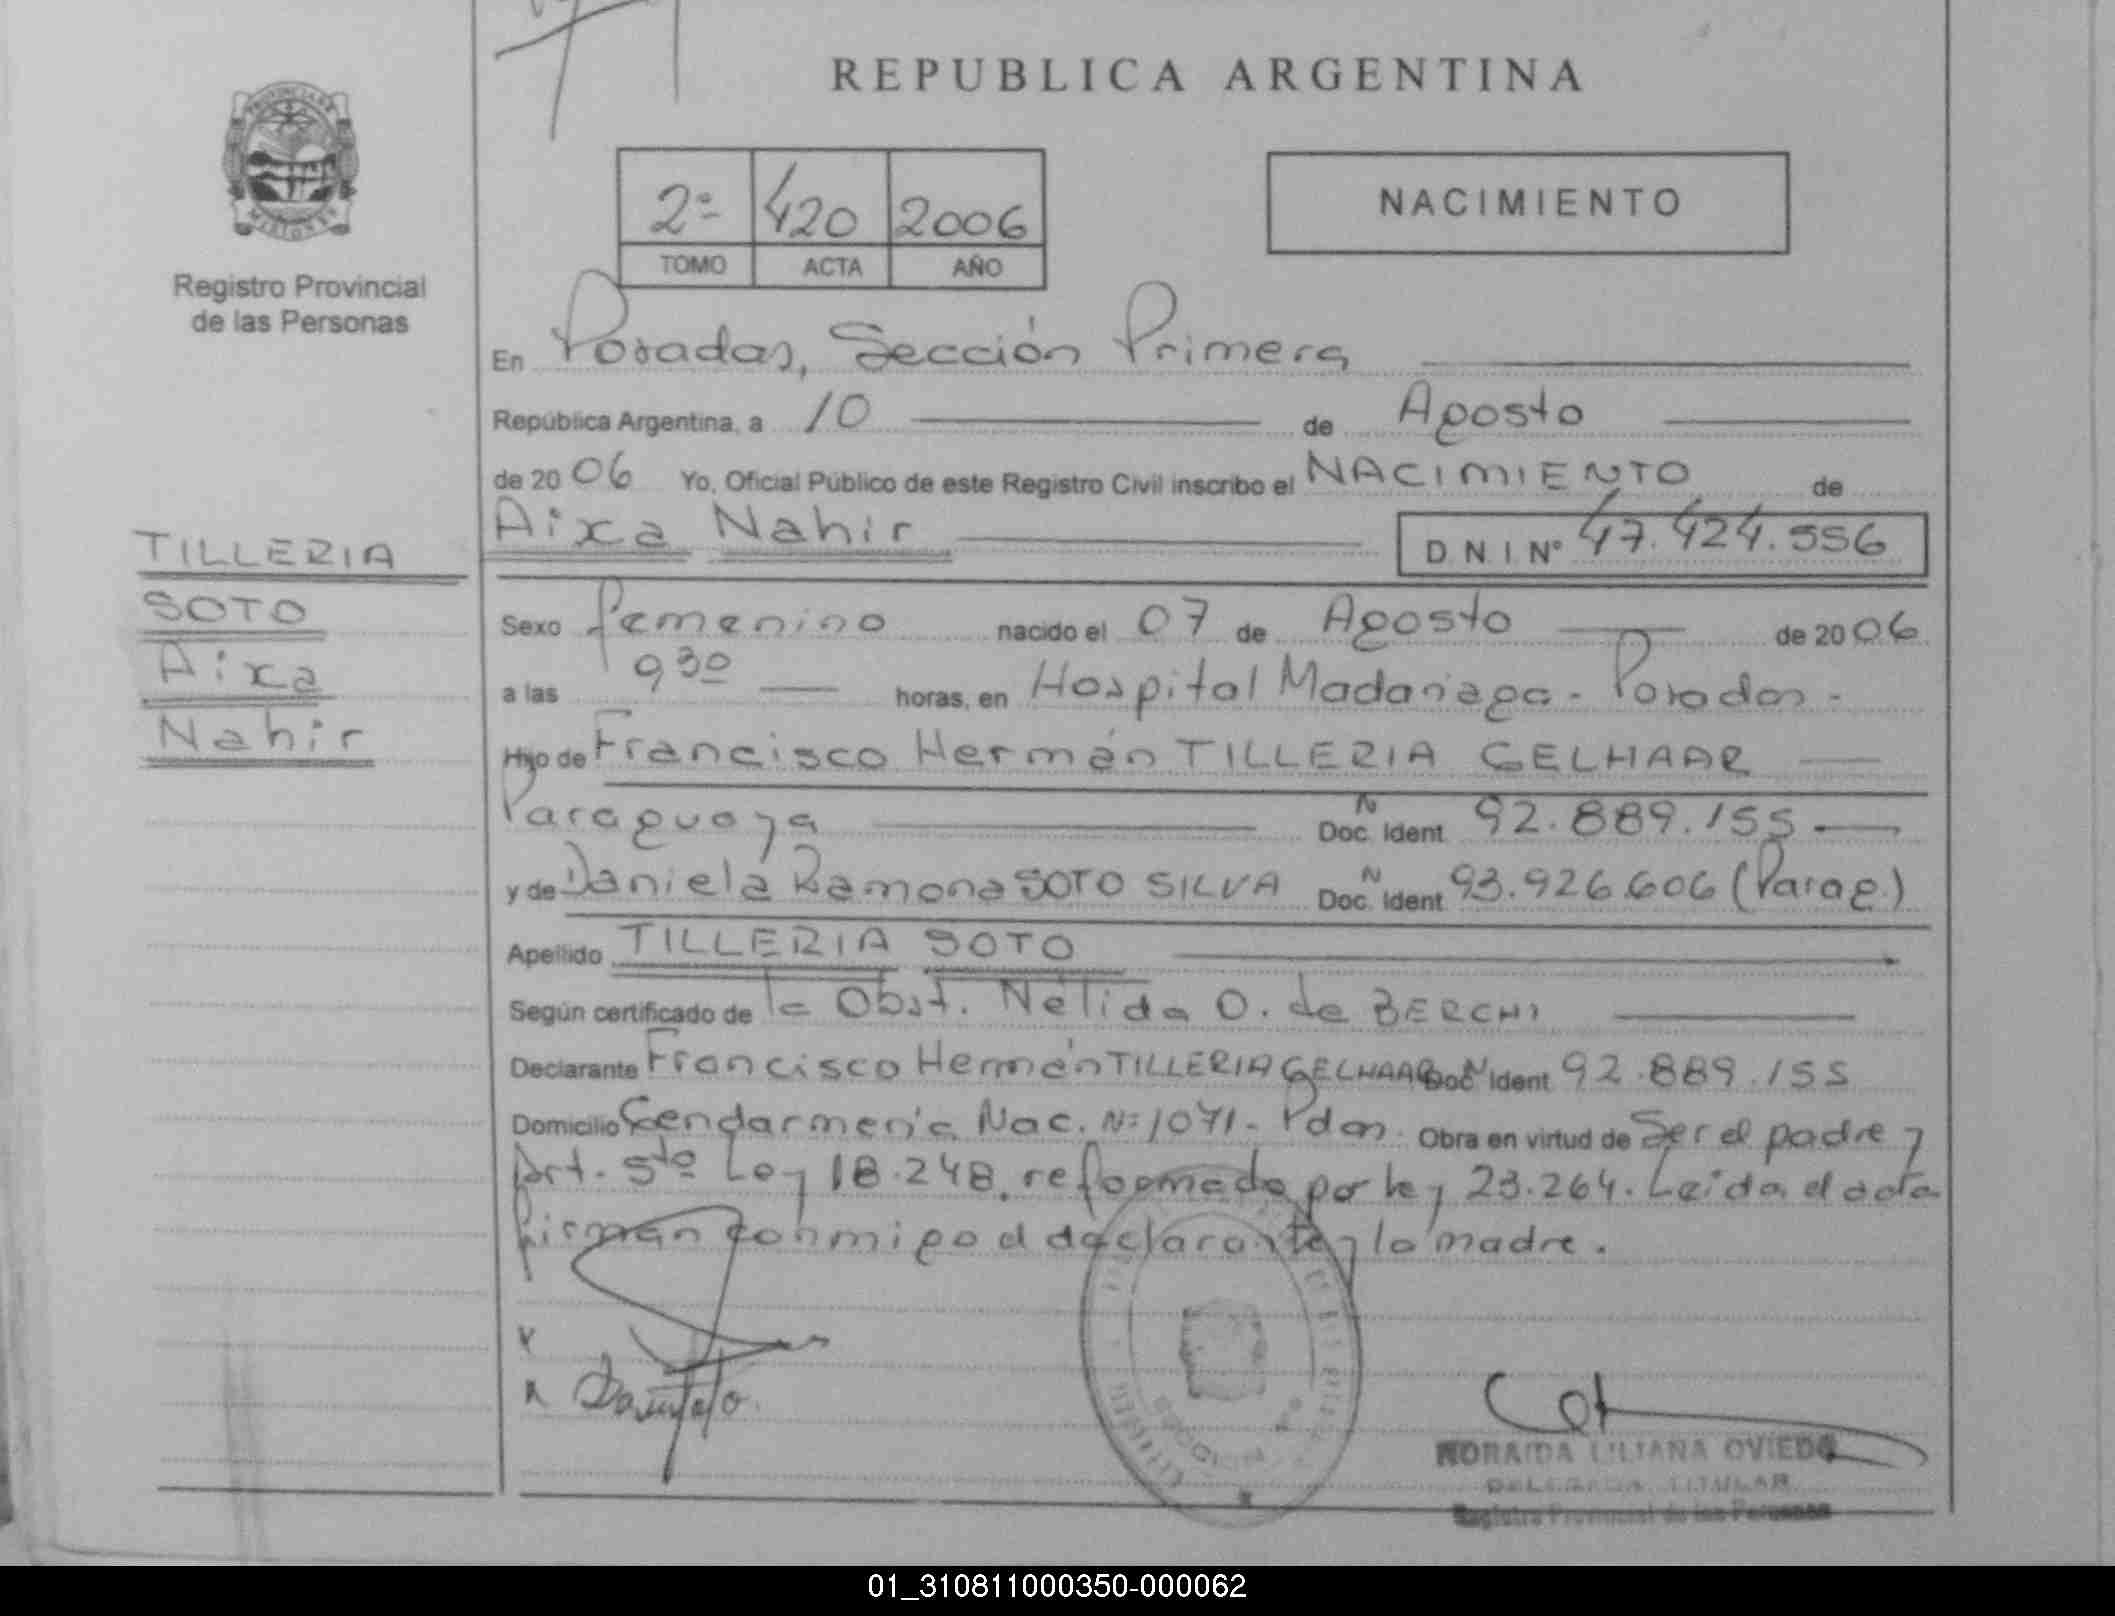 REPUBLICA ARGENTINA
PROVINCIA DE
MISIONES
Registro Provincial
de las Personas
2º 420 2006
TOMO ACTA AÑO
NACIMIENTO
En Posadas, Sección Primera
República Argentina, a 10 de Agosto
de 2006 Yo, Oficial Público de este Registro Civil inscribo el NACIMIENTO de
Aixa Nahir D. N. I. Nº 47.424.556
TILLERIA
SOTO
Aixa
Nahir
Sexo femenino nacido el 07 de Agosto de 2006
a las 9,30 horas, en Hospital Madariaga - Posadas -
Hijo de Francisco Hermán TILLERIA GELHAAR
Paraguaya N Doc. Ident 92.889.155
y de Daniela Ramona SOTO SILVA N Doc. Ident 93.926.606 (Parag.)
Apellido TILLERIA SOTO
Según certificado de la Obst. Nélida O. de BERCHI
Declarante Francisco Hermán TILLERIA GELHAAR Doc N Ident 92.889.155
Domicilio Gendarmería Nac. Nº 1071 - Pdas. Obra en virtud de Ser el padre y
Art. 5to Ley 18.248, reformada por ley 23.264. Leída el acta
firman conmigo el declarante y la madre.
NORAIDA LILIANA OVIEDO
DELEGADA TITULAR
Registro Provincial de las Personas
01_310811000350-000062